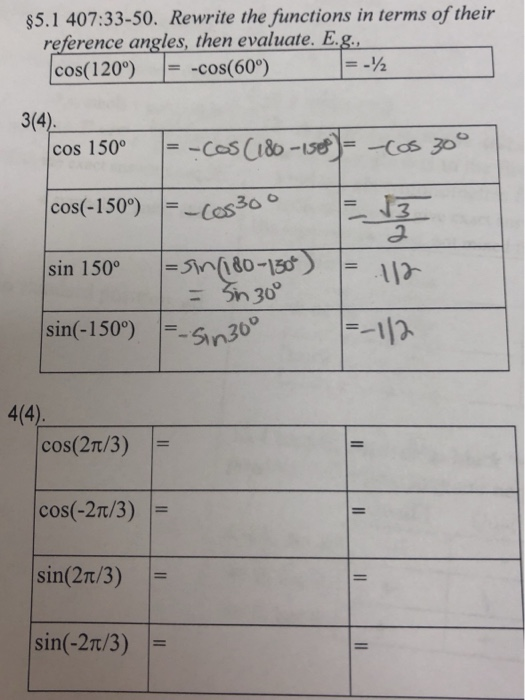 §5.1 407:33-50. Rewrite the functions in terms of their
reference angles, then evaluate. E.g.,
cos(120º) = -cos(60º) = -½
3(4).
cos 150º = -cos(180-150°) = -cos 30°
cos(-150º) = -cos30° = -√3/2
sin 150º = sin(180-150°) = 1/2
= sin 30°
sin(-150º) = -sin30° = -1/2
4(4).
cos(2π/3) = =
cos(-2π/3) = =
sin(2π/3) = =
sin(-2π/3) = =